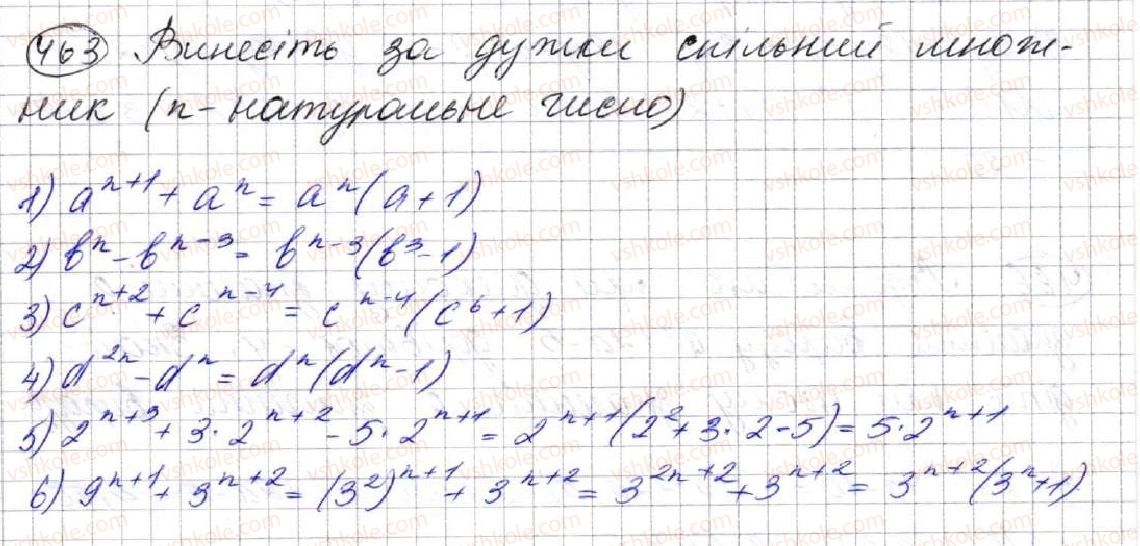 463 Винесіть за дужки спільний множ-
ник (n - натуральне число)
1) a^{n+1} + a^n = a^n (a + 1)
2) b^n - b^{n-3} = b^{n-3} (b^3 - 1)
3) c^{n+2} + c^{n-4} = c^{n-4} (c^6 + 1)
4) d^{2n} - d^n = d^n (d^n - 1)
5) 2^{n+3} + 3 · 2^{n+2} - 5 · 2^{n+1} = 2^{n+1} (2^2 + 3 · 2 - 5) = 5 · 2^{n+1}
6) 9^{n+1} + 3^{n+2} = (3^2)^{n+1} + 3^{n+2} = 3^{2n+2} + 3^{n+2} = 3^{n+2} (3^n + 1)